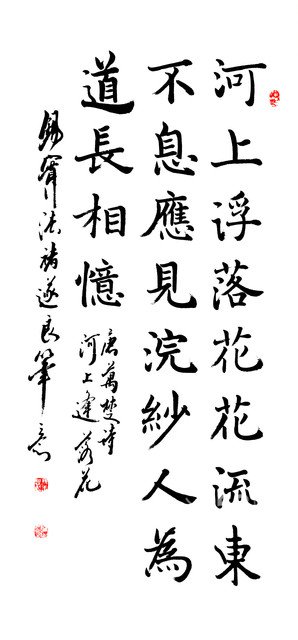 河上浮落花花流東
不息應見浣紗人為
道長相憶
唐萬楚詩
河上逢落花
錫法褚遂良筆意